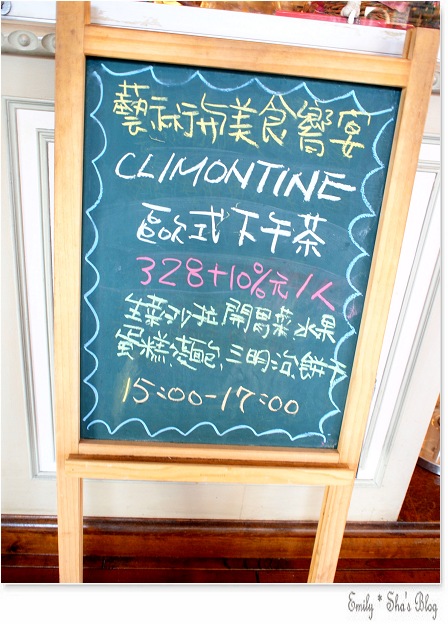 藝術斻美食饗宴
CLIMONTINE
歐式下午茶
328+10%元/人
生菜沙拉開胃菜水果
蛋糕、麵包、三明治、餅干
15:00-17:00
Emily * Sha's Blog